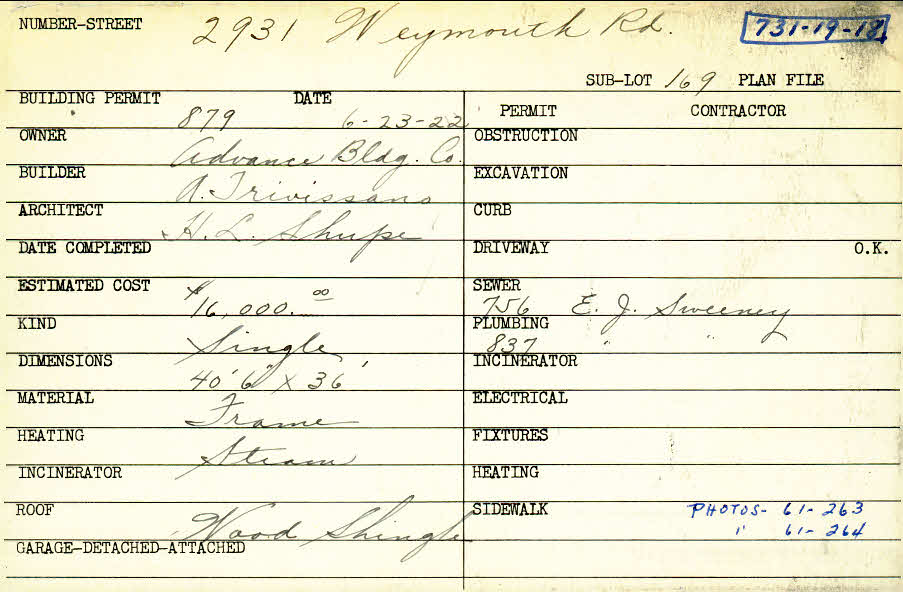 NUMBER-STREET 2931 Weymouth Rd. 731-19-18
SUB-LOT 169 PLAN FILE
BUILDING PERMIT 879 DATE 6-23-22
PERMIT CONTRACTOR
OWNER Advance Bldg. Co.
OBSTRUCTION
BUILDER A. Trivissano
EXCAVATION
ARCHITECT H. L. Shupe
CURB
DATE COMPLETED
DRIVEWAY O.K.
ESTIMATED COST $16,000.00
SEWER 756 E. J. Sweeney
KIND Single
PLUMBING 837 " "
DIMENSIONS 40'6" X 36'
INCINERATOR
MATERIAL Frame
ELECTRICAL
HEATING Steam
FIXTURES
INCINERATOR
HEATING
ROOF Wood Shingle
SIDEWALK PHOTOS- 61-263
" 61-264
GARAGE-DETACHED-ATTACHED